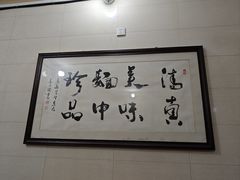 清真
美味
麵中
珍品